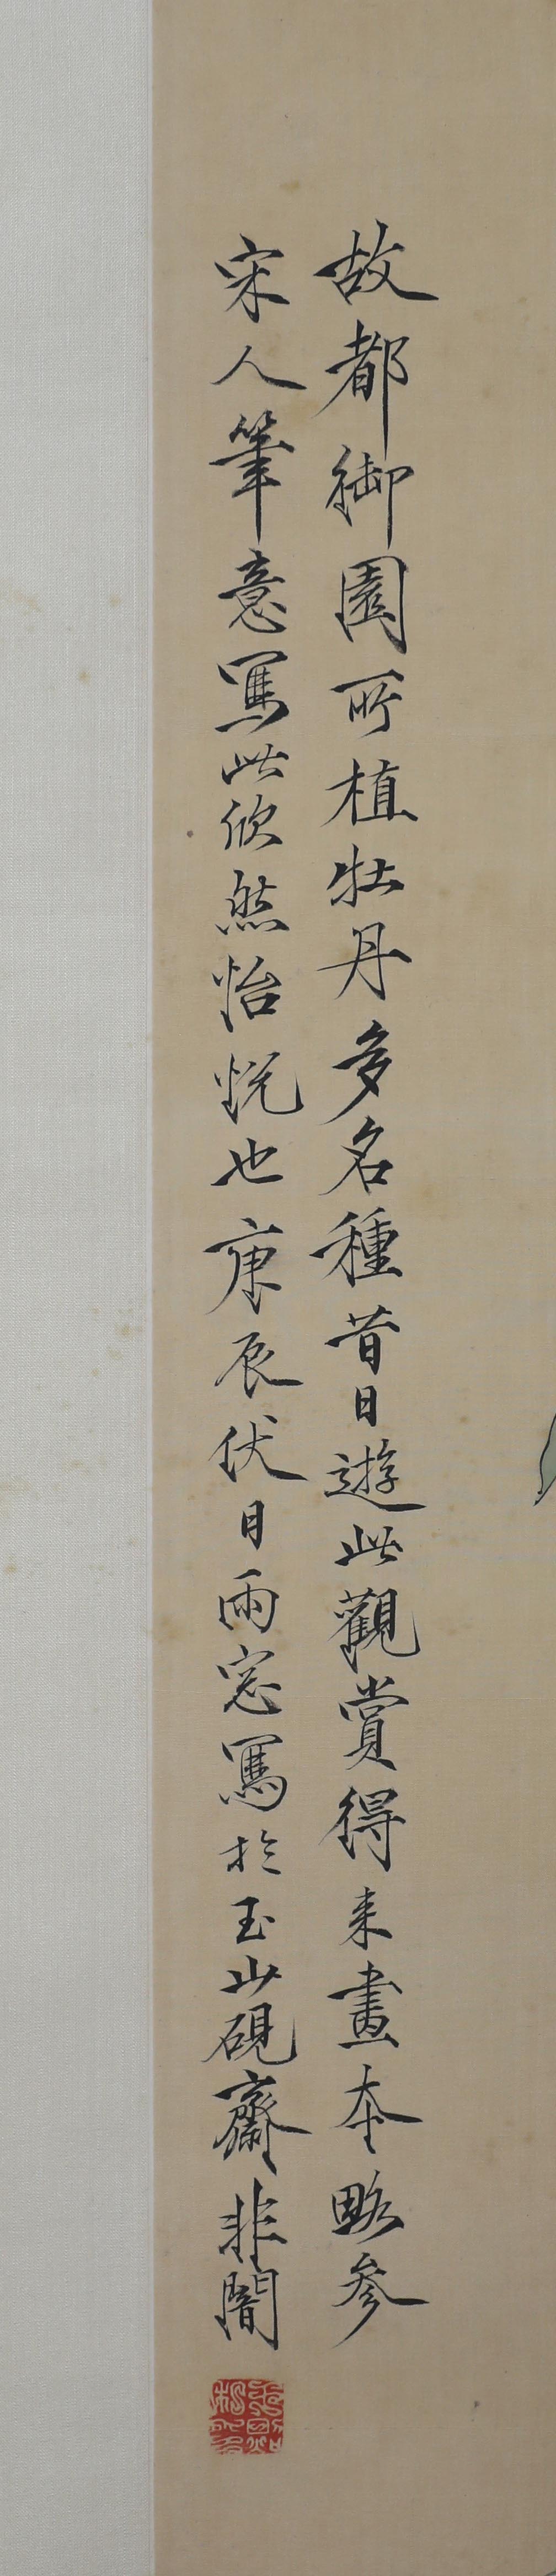 故都御園所植牡丹多名種昔日遊此觀賞得来畫本略參
宋人筆意寫此欣然怡悅也庚辰伏日雨窓寫於玉山硯齋非闇